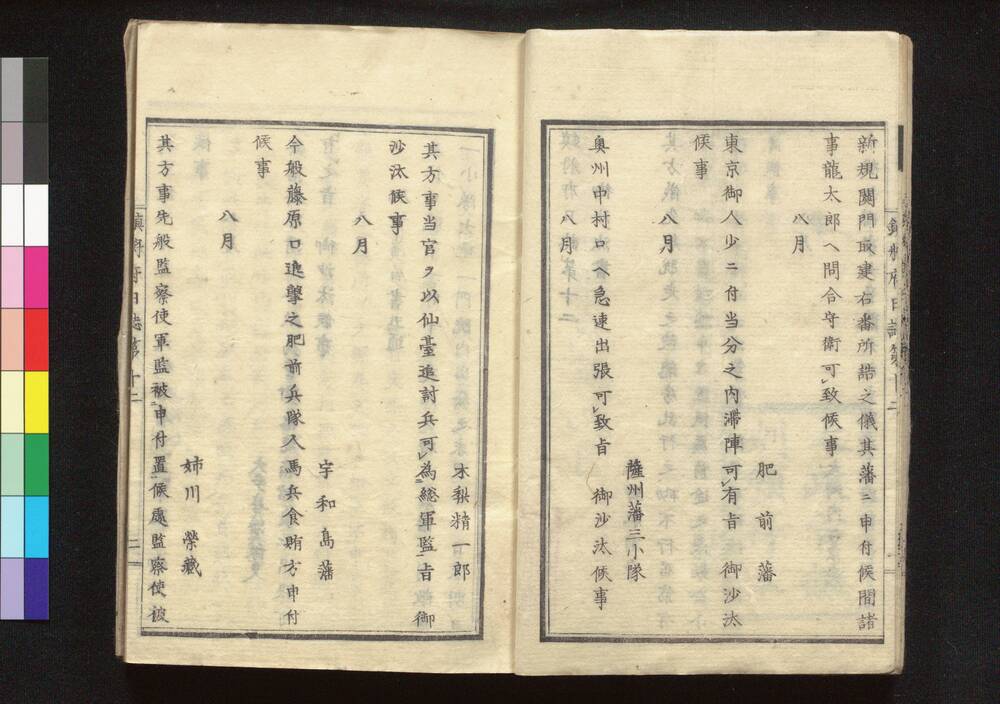 新規關門取建右番所詰之儀其藩ニ申付候間諸
事龍太郎ヘ問合守衛可致候事
八月
肥前藩
東京御人少ニ付当分之内滯陣可有旨御沙汰
候事
八月
薩州藩三小隊
奥州中村口ヘ急速出張可致旨 御沙汰候事
八月
木梨精一郎
其方事当官ヲ以仙臺追討兵可為総軍監旨 御
沙汰候事
八月
宇和島藩
今般藤原口進擊之肥前兵隊人馬兵食賄方申付
候事
八月
姉川 榮藏
其方事先般監察使軍監被申付置候處監察使被
鎮將府日誌第十二
二